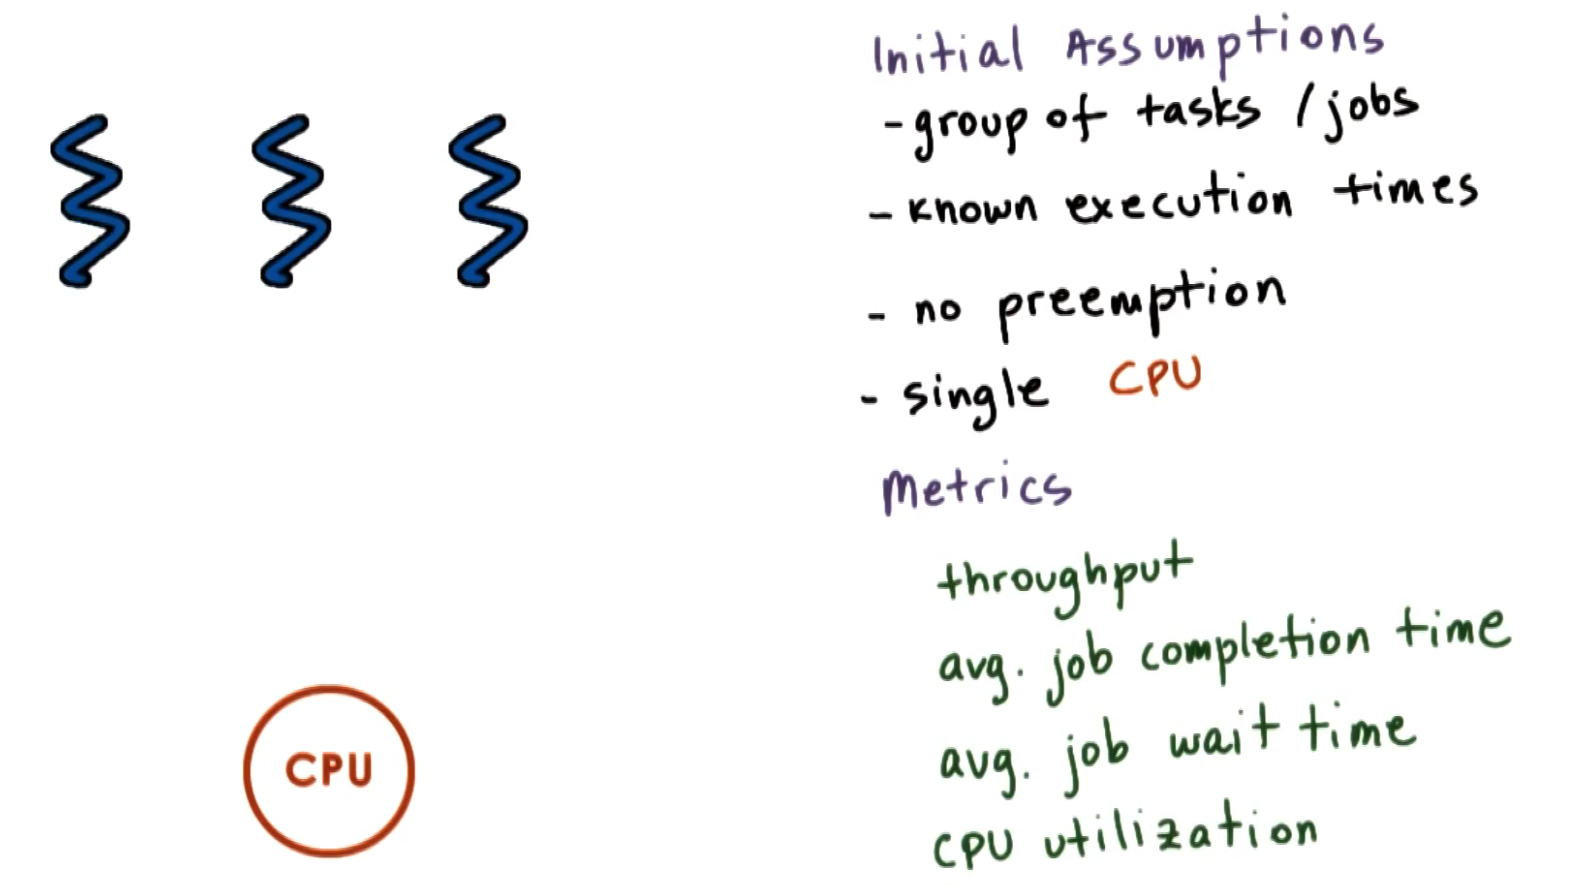 Initial Assumptions
- group of tasks / jobs
- known execution times
- no preemption
- single CPU
Metrics
throughput
avg. job completion time
avg. job wait time
CPU utilization
CPU